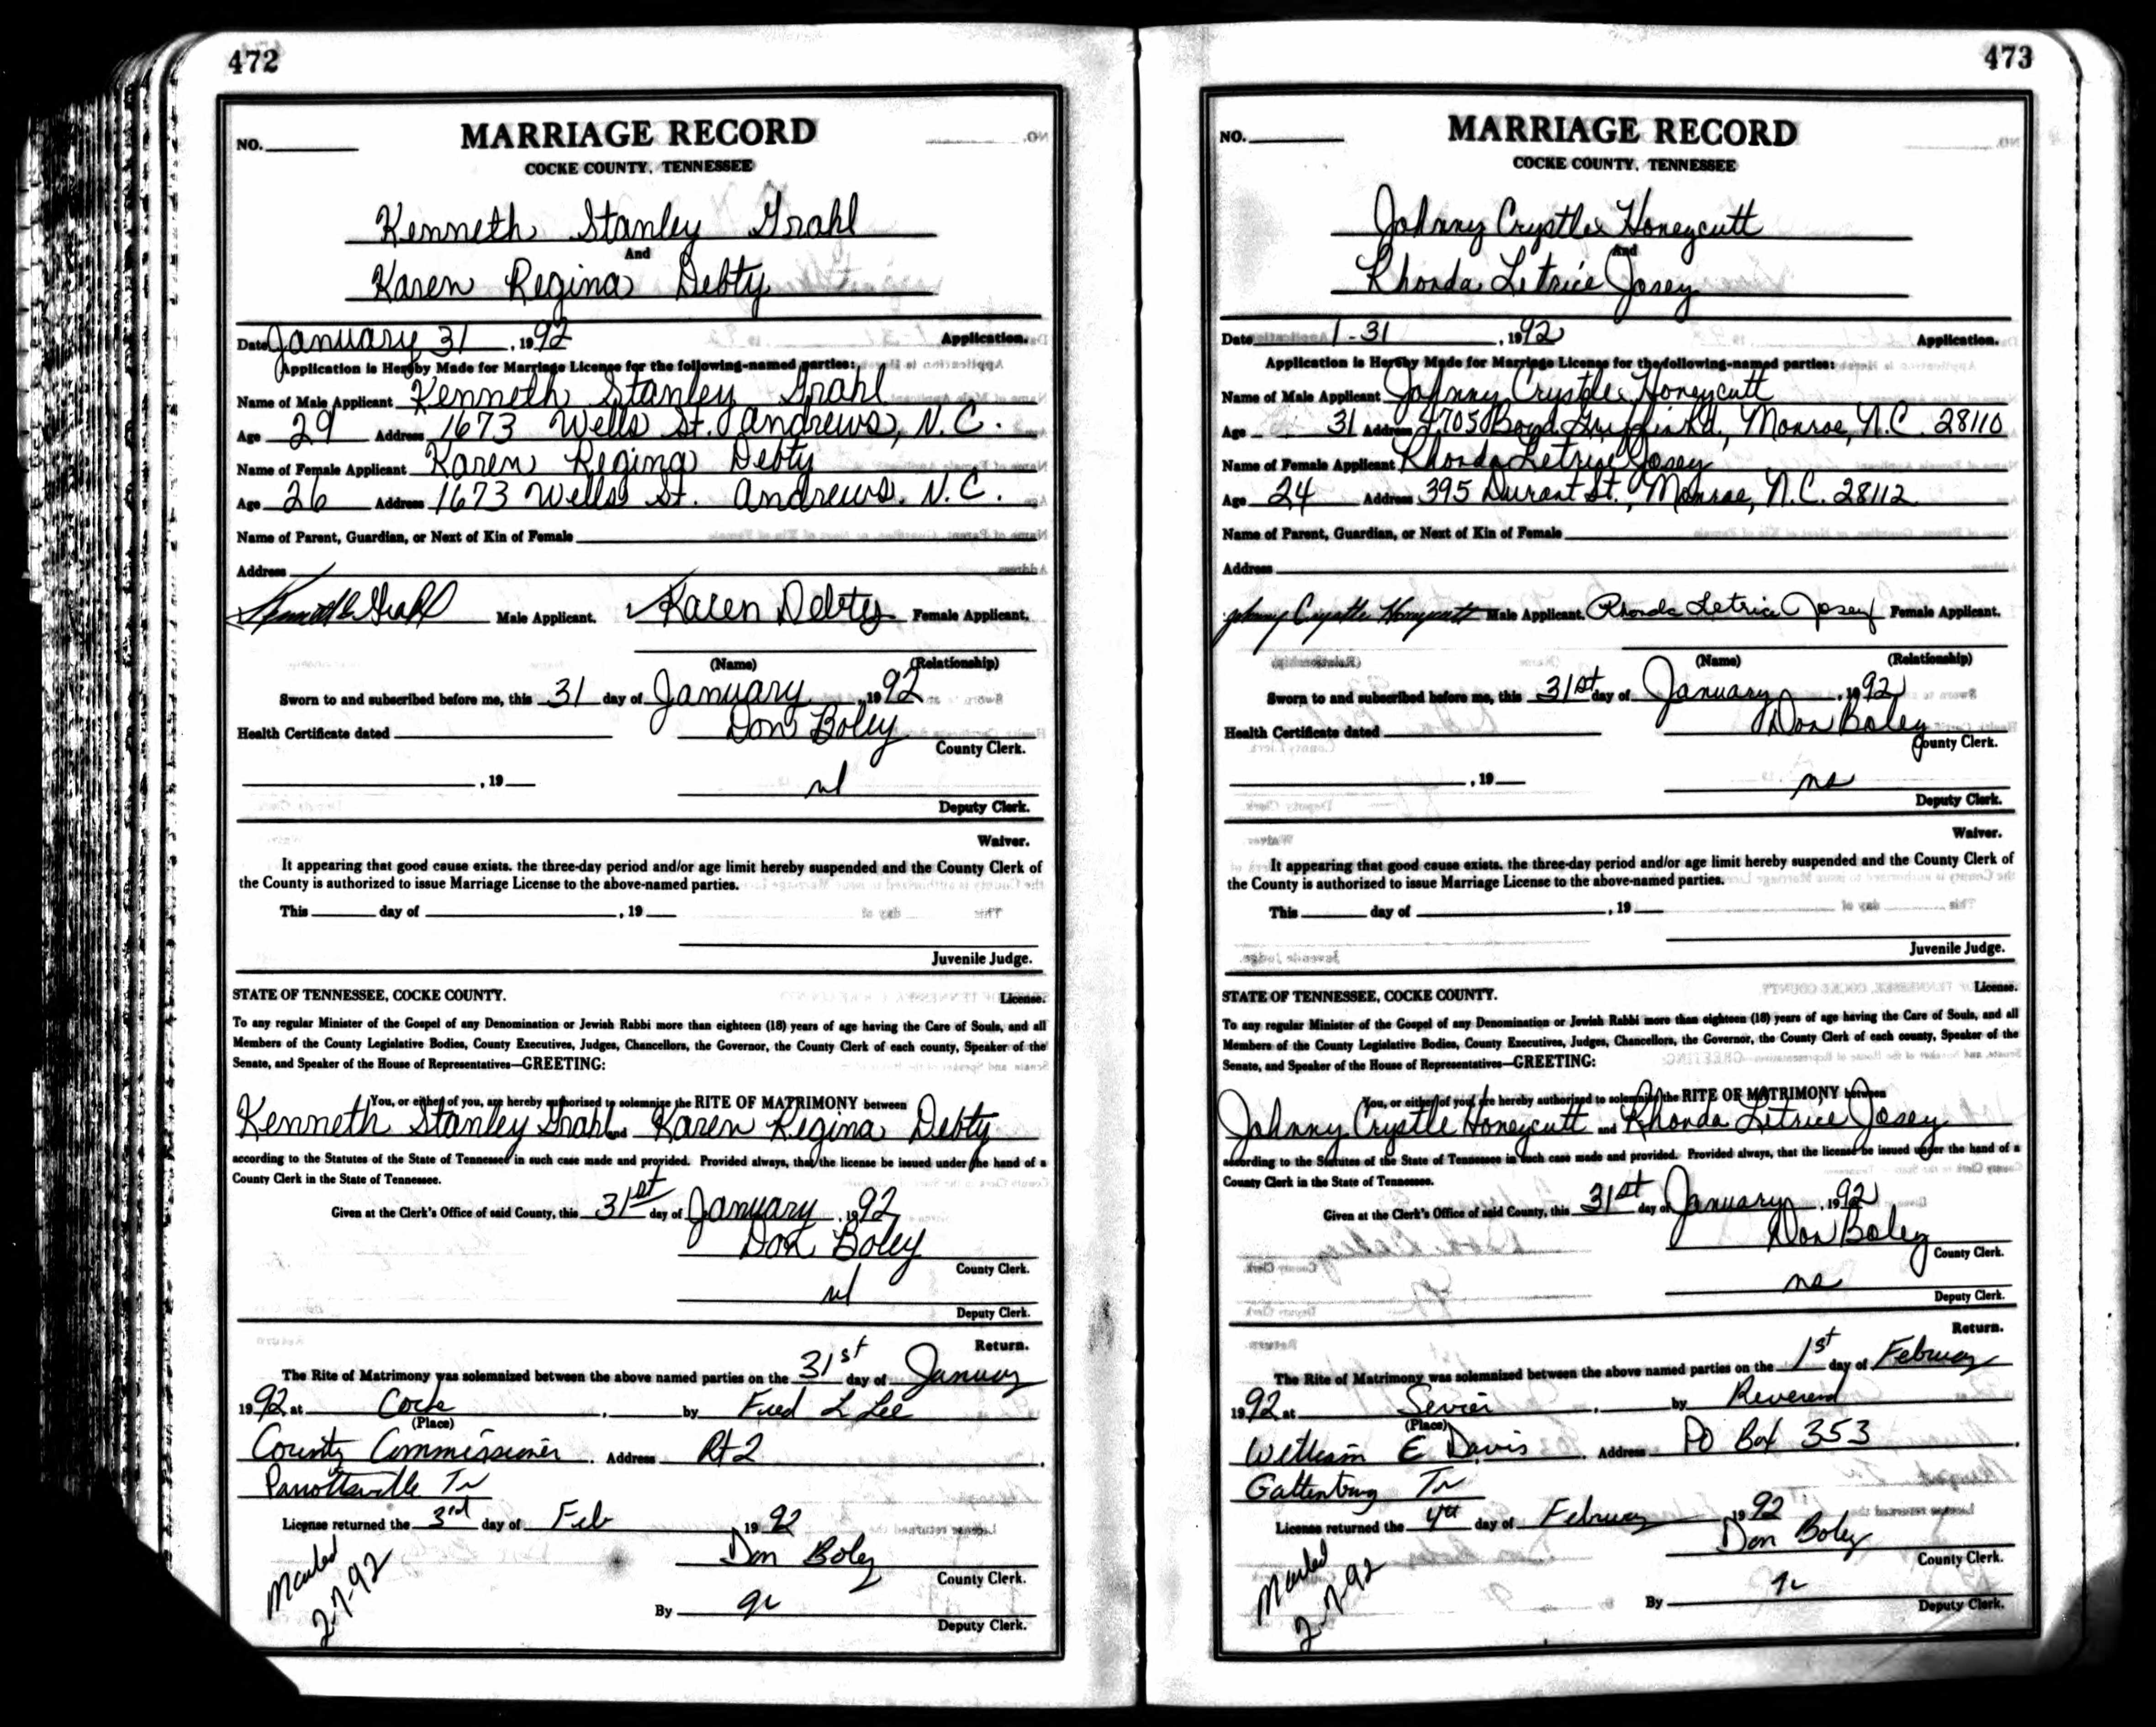 472
NO.
MARRIAGE RECORD
COCKE COUNTY, TENNESSEE
Kenneth Stanley Grahl
And
Karen Regina Debty
Date January 31, 1992 Application.
Application is Hereby Made for Marriage License for the following-named parties:
Name of Male Applicant Kenneth Stanley Grahl
Age 29 Address 1673 Wells St. Andrews, N.C.
Name of Female Applicant Karen Regina Debty
Age 26 Address 1673 Wells St. Andrews, N.C.
Name of Parent, Guardian, or Next of Kin of Female
Address
Male Applicant. Karen Debty Female Applicant,
(Name) (Relationship)
Sworn to and subscribed before me, this 31 day of January, 1992
Health Certificate dated Don Boley
County Clerk.
, 19
Deputy Clerk.
Waiver.
It appearing that good cause exists, the three-day period and/or age limit hereby suspended and the County Clerk of
the County is authorized to issue Marriage License to the above-named parties.
This day of , 19
Juvenile Judge.
STATE OF TENNESSEE, COCKE COUNTY. License.
To any regular Minister of the Gospel of any Denomination or Jewish Rabbi more than eighteen (18) years of age having the Care of Souls, and all
Members of the County Legislative Bodies, County Executives, Judges, Chancellors, the Governor, the County Clerk of each county, Speaker of the
Senate, and Speaker of the House of Representatives—GREETING:
You, or either of you, are hereby authorized to solemnize the RITE OF MATRIMONY between
Kenneth Stanley Grahl and Karen Regina Debty
according to the Statutes of the State of Tennessee in such case made and provided. Provided always, that the license be issued under the hand of a
County Clerk in the State of Tennessee.
Given at the Clerk's Office of said County, this 31st day of January, 1992
Don Boley
County Clerk.
Deputy Clerk.
Return.
The Rite of Matrimony was solemnized between the above named parties on the 31st day of January
1992 at Cocke, by Fred L Lee
(Place)
County Commissioner. Address Rt 2
Parrottsville Tn
License returned the 3rd day of Feb 1992
Don Boley
County Clerk.
Mailed
2-7-92
By
Deputy Clerk.
473
NO.
MARRIAGE RECORD
COCKE COUNTY, TENNESSEE
Johnny Crystle Honeycutt
And
Rhonda Letrice Josey
Date 1-31, 1992 Application.
Application is Hereby Made for Marriage License for the following-named parties:
Name of Male Applicant Johnny Crystle Honeycutt
Age 31 Address 4705 Boyd Griffin Rd, Monroe, N.C. 28110
Name of Female Applicant Rhonda Letrice Josey
Age 24 Address 395 Durant St., Monroe, N.C. 28112
Name of Parent, Guardian, or Next of Kin of Female
Address
Johnny Crystle Honeycutt Male Applicant. Rhonda Letrice Josey Female Applicant.
(Name) (Relationship)
Sworn to and subscribed before me, this 31st day of January, 1992
Health Certificate dated Don Boley
County Clerk.
, 19
Deputy Clerk.
Waiver.
It appearing that good cause exists, the three-day period and/or age limit hereby suspended and the County Clerk of
the County is authorized to issue Marriage License to the above-named parties.
This day of , 19
Juvenile Judge.
STATE OF TENNESSEE, COCKE COUNTY. License.
To any regular Minister of the Gospel of any Denomination or Jewish Rabbi more than eighteen (18) years of age having the Care of Souls, and all
Members of the County Legislative Bodies, County Executives, Judges, Chancellors, the Governor, the County Clerk of each county, Speaker of the
Senate, and Speaker of the House of Representatives—GREETING:
You, or either of you, are hereby authorized to solemnize the RITE OF MATRIMONY between
Johnny Crystle Honeycutt and Rhonda Letrice Josey
according to the Statutes of the State of Tennessee in such case made and provided. Provided always, that the license be issued under the hand of a
County Clerk in the State of Tennessee.
Given at the Clerk's Office of said County, this 31st day of January, 1992
Don Boley
County Clerk.
Deputy Clerk.
Return.
The Rite of Matrimony was solemnized between the above named parties on the 1st day of February
1992 at Sevier, by Reverend
(Place)
E Davis. Address PO Box 353
Tn
License returned the 4th day of February 1992
Don Boley
County Clerk.
Mailed
2-7-92
By
Deputy Clerk.